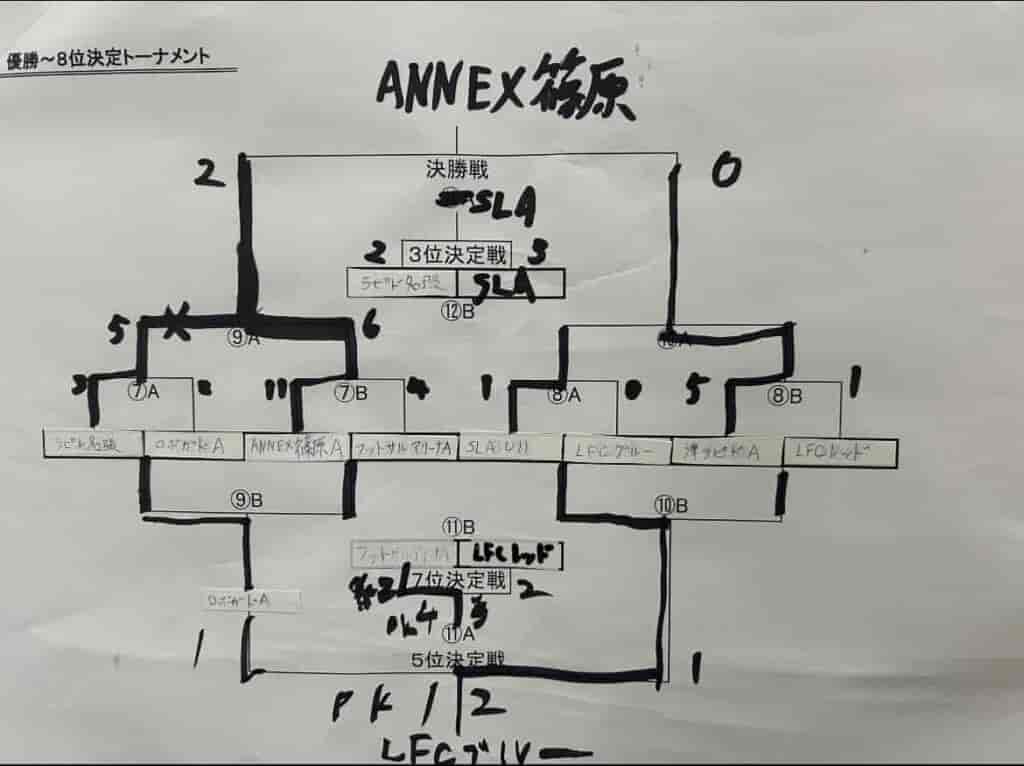 優勝～8位決定トーナメント
ANNEX篠原
2 0
決勝戦
SLA
2 3位決定戦 3
ラピド名張 SLA
⑫B
5 6
⑨A
⑦A ⑦B 4 1 ⑧A 0 5 ⑧B 1
11
ロボガトA ANNEX篠原A フットサルアリーナA LFCブルー 津ラピドA LFCレッド
⑨B ⑩B
⑪B
LFCレッド
7位決定戦 2
PK4 3
⑪A
ロボガトA
1 1
5位決定戦
PK 1 2
LFCブルー